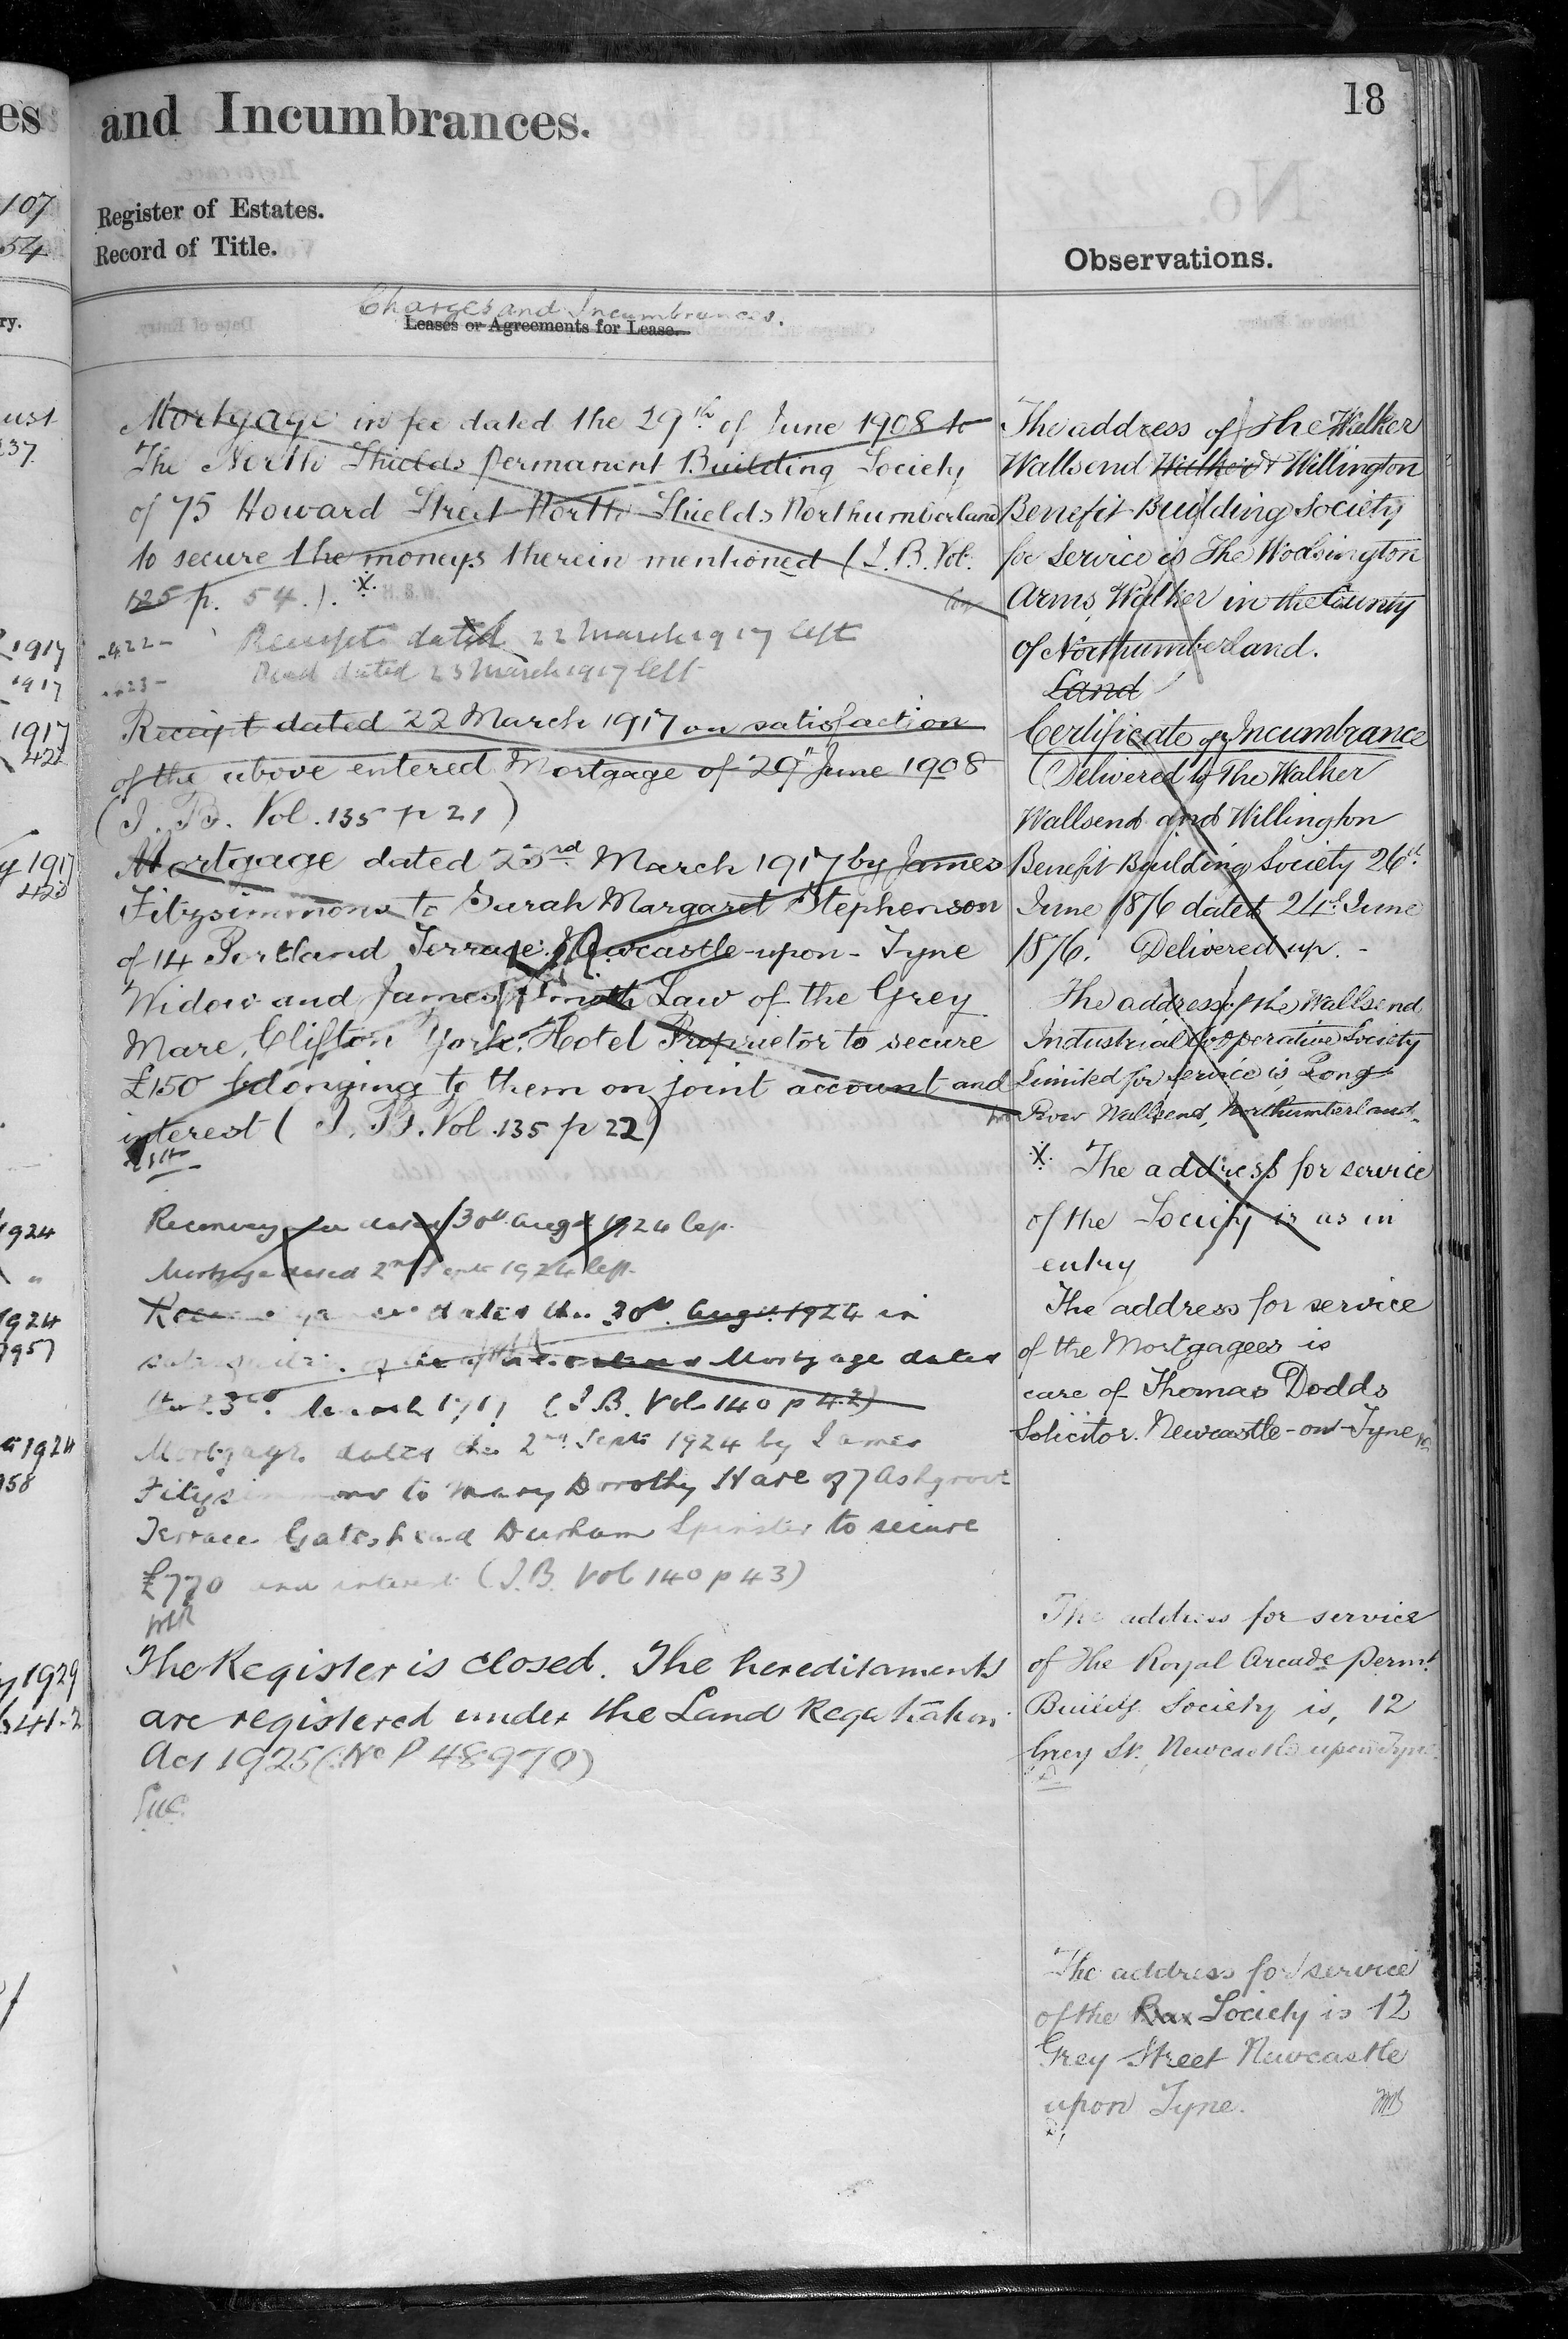 es
107
54
ry.
ust
237.
1917
1917
1917
422
y 1917
423
1924
"
1924
1957
1924
958
y 1929
41-2
and Incumbrances.
18
Register of Estates.
Record of Title.
Observations.
Charges and Incumbrances.
Leases or Agreements for Lease.
Mortgage in fee dated the 29th of June 1908 to
The North Shields Permanent Building Society
of 75 Howard Street North Shields Northumberland
to secure the moneys therein mentioned (I.B. Vol.
125 p. 54.). X
-422- Receipt dated 22 March 1917 left
-423- Deed dated 23 March 1917 left
Receipt dated 22 March 1917 on satisfaction
of the above entered Mortgage of 29th June 1908
(I. B. Vol. 135 p 21)
Mortgage dated 23rd March 1917 by James
Fitzsimmons to Sarah Margaret Stephenson
of 14 Portland Terrace Newcastle-upon-Tyne
Widow and James Smith Law of the Grey
Mare, Clifton York, Hotel Proprietor to secure
£150 belonging to them on joint account and
interest (I. B. Vol. 135 p 22)
Reconveyance dated 30th Augt 1924 left.
Mortgage dated 2nd Septr 1924 left.
Reconveyance dated the 30th Augt. 1924 in
satisfaction of the Mortgage dated
the 23rd March 1917 (I.B. Vol 140 p 42)
Mortgage dated the 2nd Septr 1924 by James
Fitzsimmons to Mary Dorothy Hare of 7 Ashgrove
Terrace Gateshead Durham Spinster to secure
£770 and interest (I.B. Vol 140 p 43)
The Register is closed. The hereditaments
are registered under the Land Registration
Act 1925 (No P 48970)
The address of The Walker
Wallsend Walker & Willington
Benefit Building Society
for service is The
Arms, Walker in the County
of Northumberland.
Land
Certificate of Incumbrance
Delivered to The Walker
Wallsend and Willington
Benefit Building Society 26th
June 1876 dated 24th June
1876. Delivered up. -
The address of the Wallsend
Industrial Cooperative Society
Limited for service is Long
Row Wallsend, Northumberland.
X The address for service
of the Society is as in
entry
The address for service
of the Mortgagees is
care of Thomas Dodds
Solicitor. Newcastle-on-Tyne
The address for service
of the Royal Arcade Permt
Buildg. Society is, 12
Grey St. Newcastle upon Tyne.
The address for service
of the Society is 12
Grey Street Newcastle
upon Tyne.